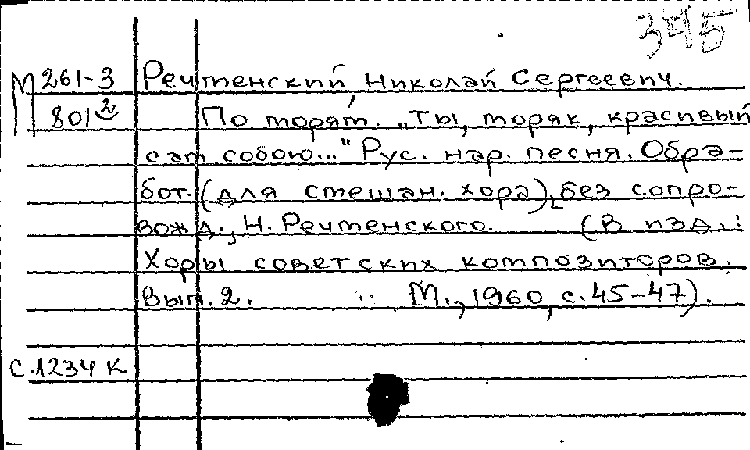 345
М 261-3
801 2
Речменский, Николай Сергеевич.
По морям. „Ты, моряк, красивый
сам собою..." Рус. нар. песня. Обра-
бот. (для смешан. хора), без сопро-
вожд., Н. Речменского. (В изд.:
Хоры советских композиторов.
Вып. 2. М., 1960, с. 45-47).
С.1234 к